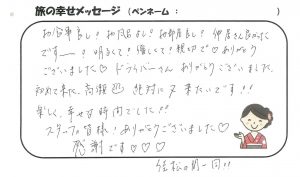 旅の幸せメッセージ (ペンネーム： )
お食事良し！お風呂よし！お部屋良し！仲居さん良かった
です━━！明るくて！優しくて！親切で♡ありがとう
ございました♡ドライバーさんありがとうございました。
初めて来た、高瀬 絶対に又来たいです!!
楽しく、幸せな時間でした!!
スタッフの皆様！ありがとうございました♡
感謝です♡♡♡
一同!!